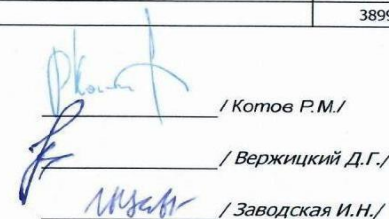 3899
/ Котов Р.М./
/ Вержицкий Д.Г./
/ Заводская И.Н./